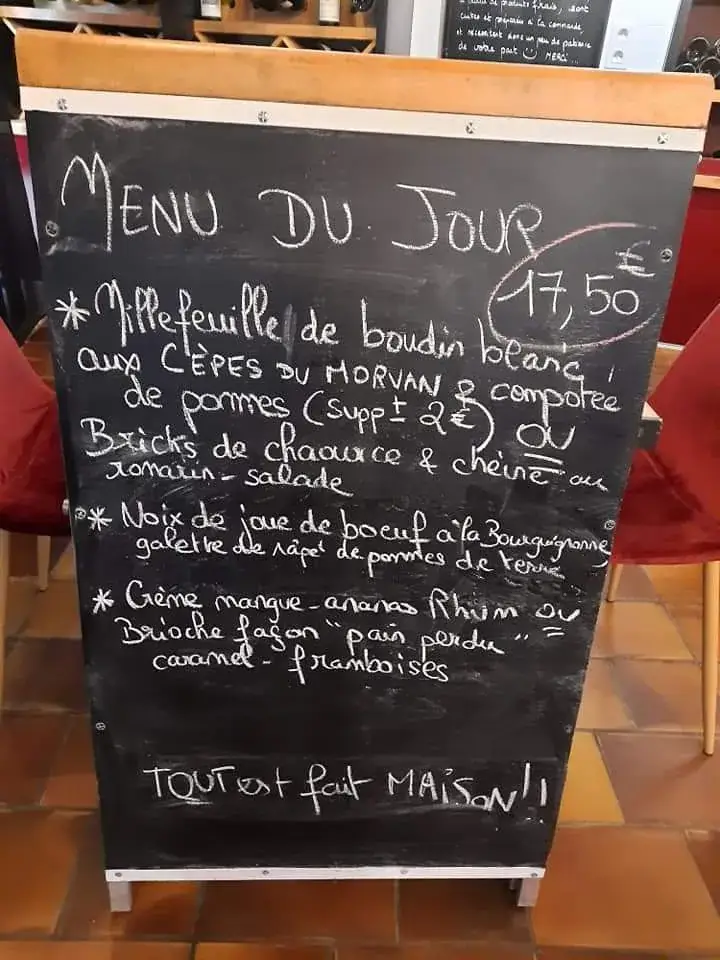 à base de produits frais, sont
cuites et préparés à la commande,
et nécessitent donc un peu de patience
de votre part MERCI...
MENU DU JOUR
17,50 €
* Millefeuille de boudin blanc
aux CÈPES DU MORVAN & compotée
de pommes (Supp± 2€) OU
Bricks de chaource & chèvre au
romarin - salade
* Noix de joue de boeuf à la Bourguignonne
galette de râpé de pommes de terre
* Crème mangue - ananas Rhum OU
Brioche façon "pain perdu"
caramel - framboises
TOUT est fait MAISON!!